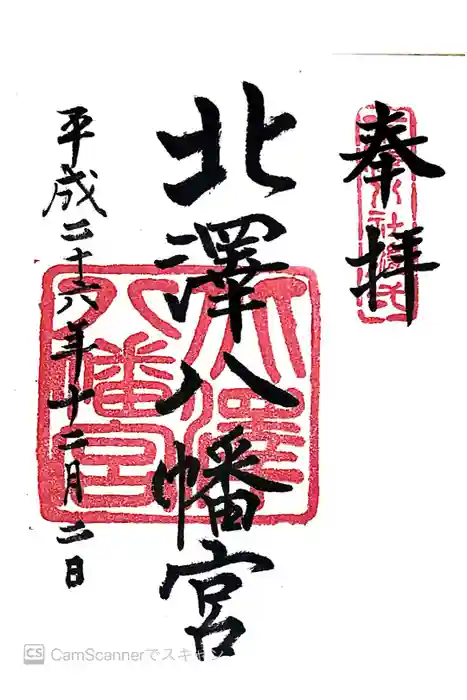 奉拝
北澤八幡宮
平成二十六年十二月二日
北澤八幡宮
CS CamScannerでスキャン